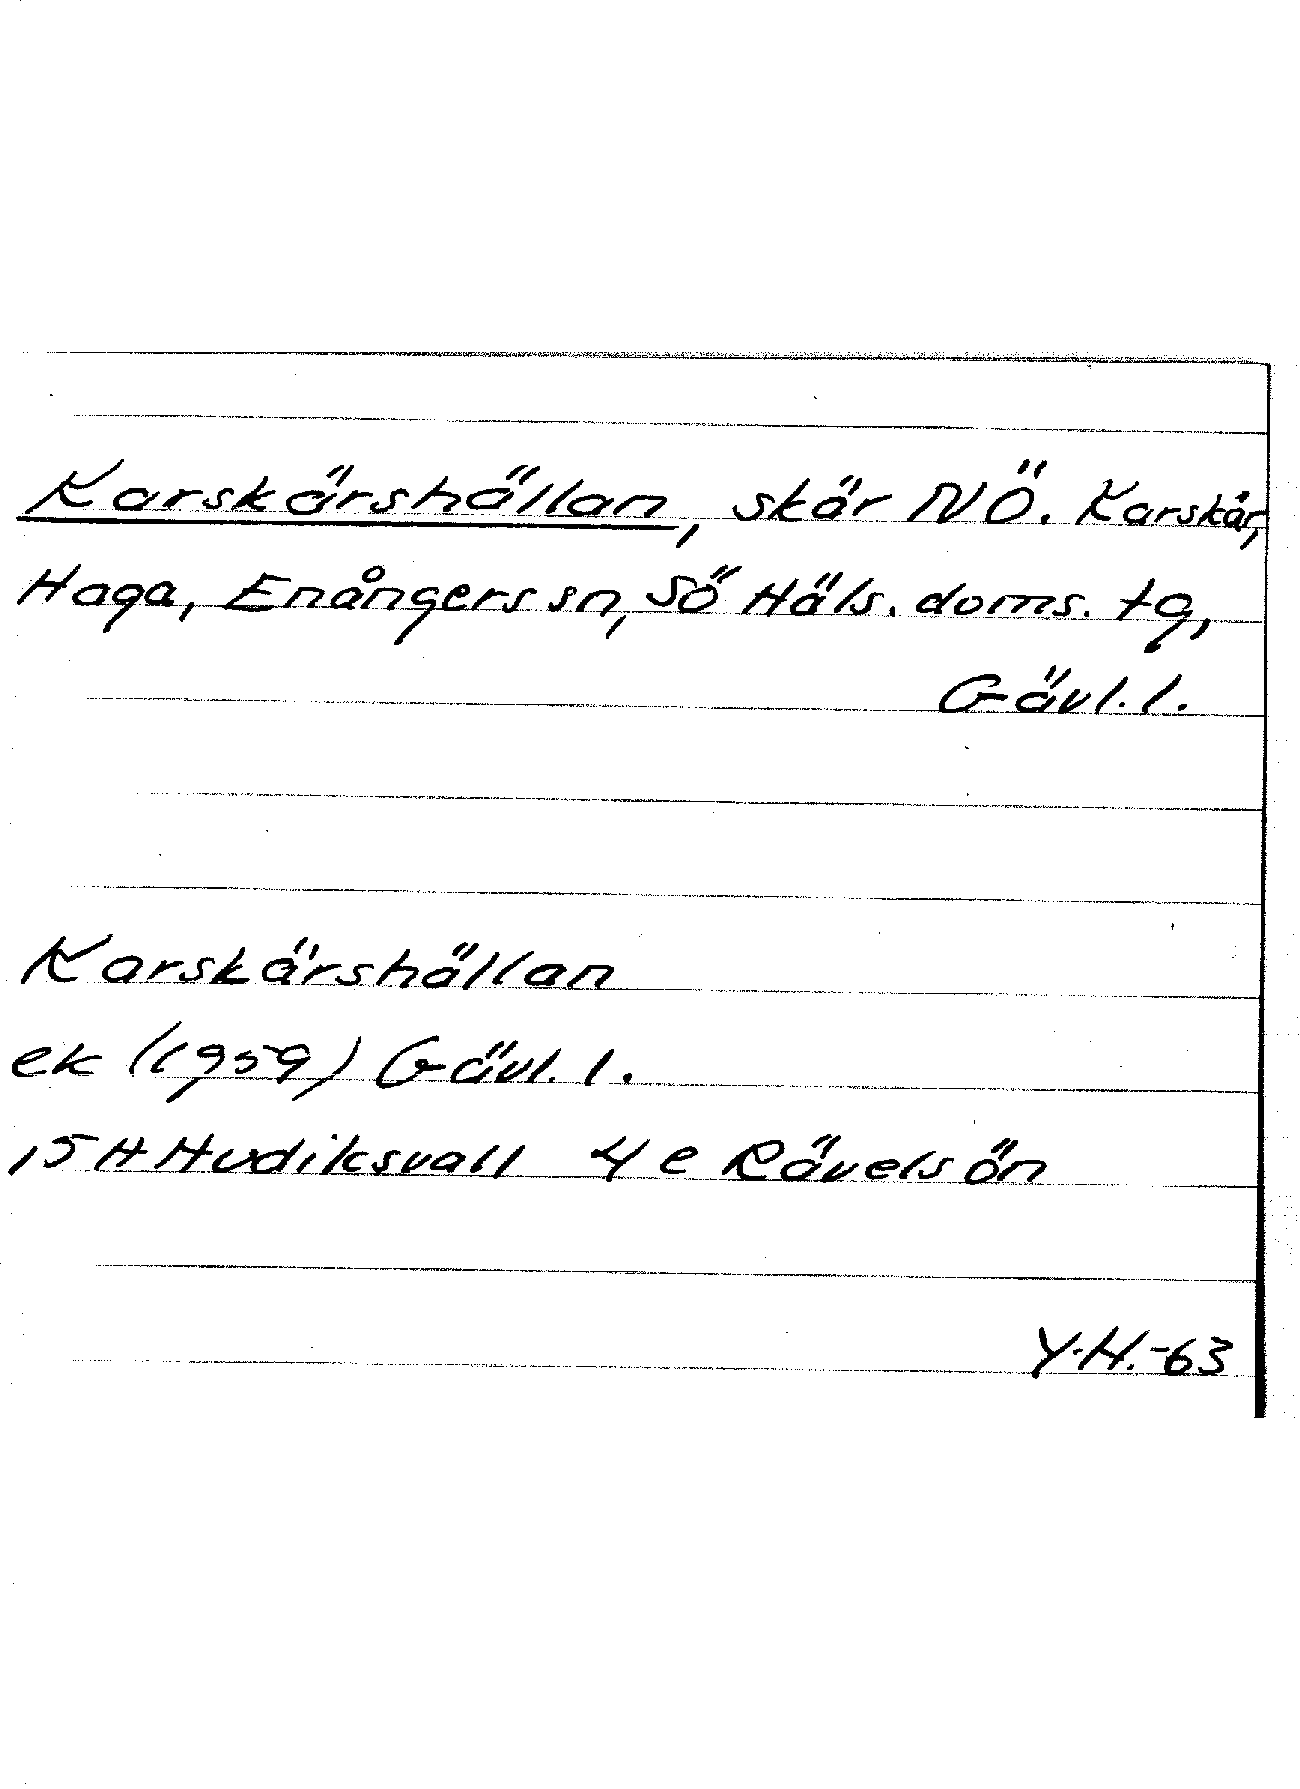 Karskärshällan, skär NÖ. Karskär,
Haga, Enångers sn, SÖ Häls. doms. tg,
Gävl. l.
Karskärshällan
ek (1959) Gävl. l.
15 H Hudiksvall 4 e Rävelsön
Y.H.-63